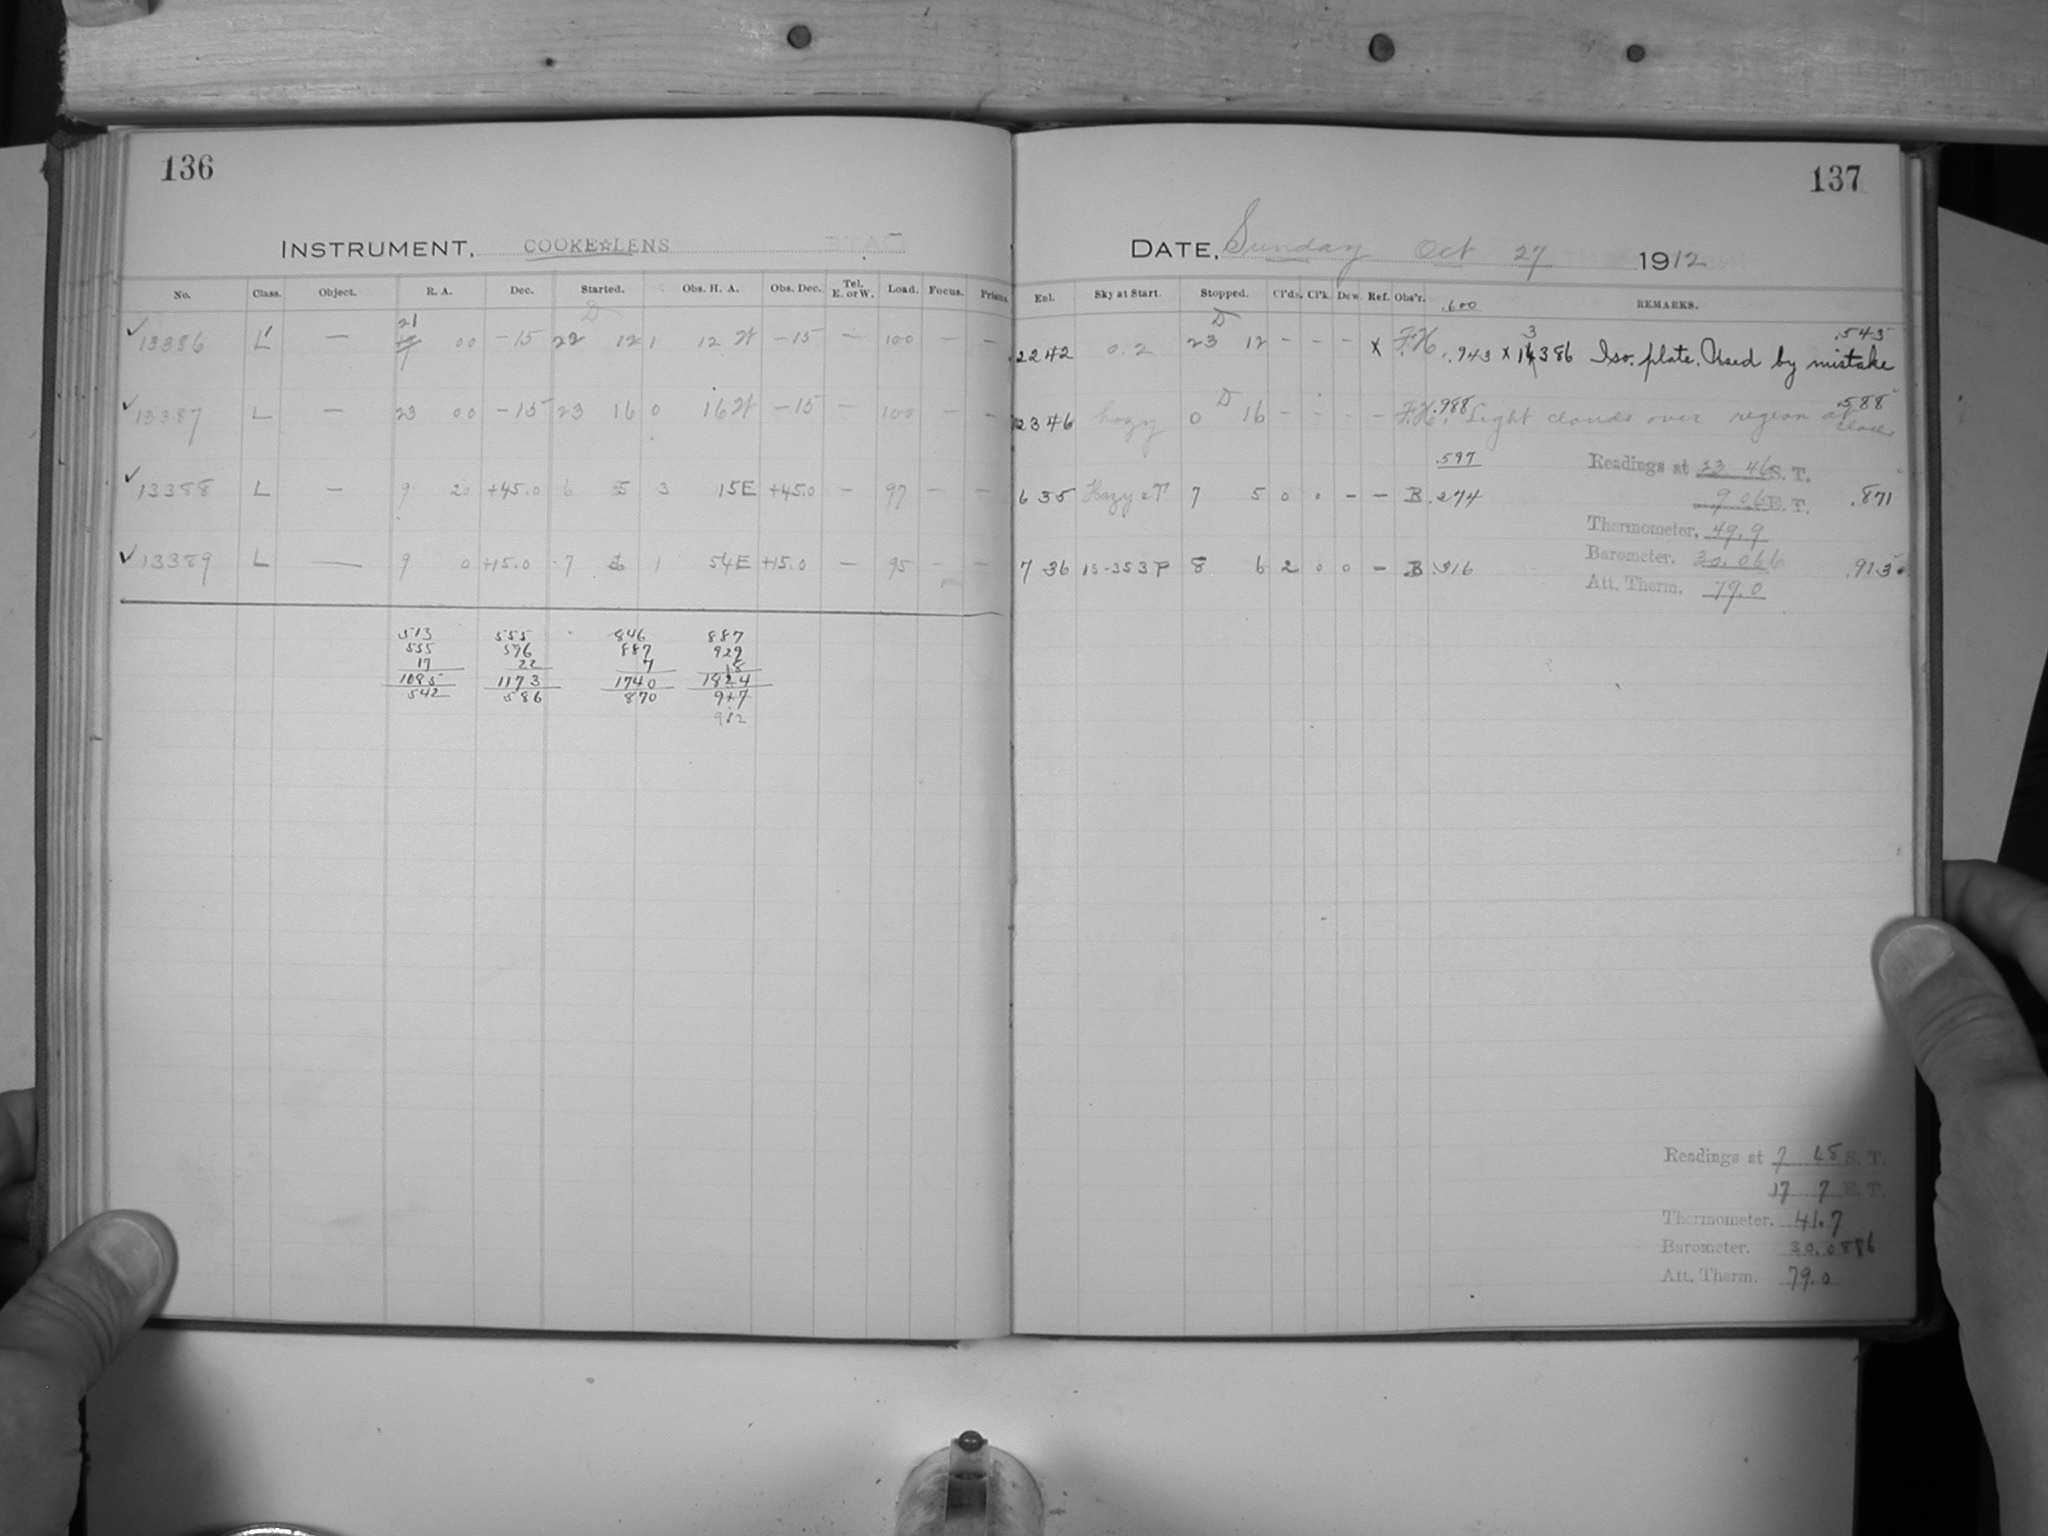 136
INSTRUMENT, COOKE☆LENS
No. Class. Object. R. A. Dec. Started. Obs. H. A. Obs. Dec. Tel. E. or W. Load. Focus. Prisms.
21
✓ 13386 L' — 00 -15 22 12 1 12 W -15 — 100 - -
✓ 13387 L — 23 00 -15 23 16 0 16 W -15 — 100 - -
✓ 13388 L — 9 20 +45.0 6 5 3 15E +45.0 — 97 - -
✓ 13389 L — 9 0 +15.0 7 6 1 54E +15.0 — 95 - -
513 555 846 887
555 576 887 929
17 22 7 18
1085 1173 1740 1824
542 586 870 917
912
137
DATE, Sunday Oct 27 1912
Exl. Sky at Start. Stopped. Cl'ds. Cl'k. Dew. Ref. Obs'r. .600 REMARKS.
D 3 .543
2242 0.2 23 12 - - - X F.H. .943 X 14386 Iso. plate. Used by mistake
D
2346 hazy 0 16 - - - - F.H. .988 Light clouds over region at close .588
.597 Readings at 23 46 S. T.
635 Hazy & T 7 5 0 0 - - B .274 .871
9 06 E. T.
Thermometer. 49.9
7 36 15-353P 8 6 2 0 0 - B .316 .913
Barometer. 30.066
Att. Therm. 79.0
Readings at 7 48 S. T.
17 7 E. T.
Thermometer. 41.7
Barometer. 30.0886
Att. Therm. 79.0